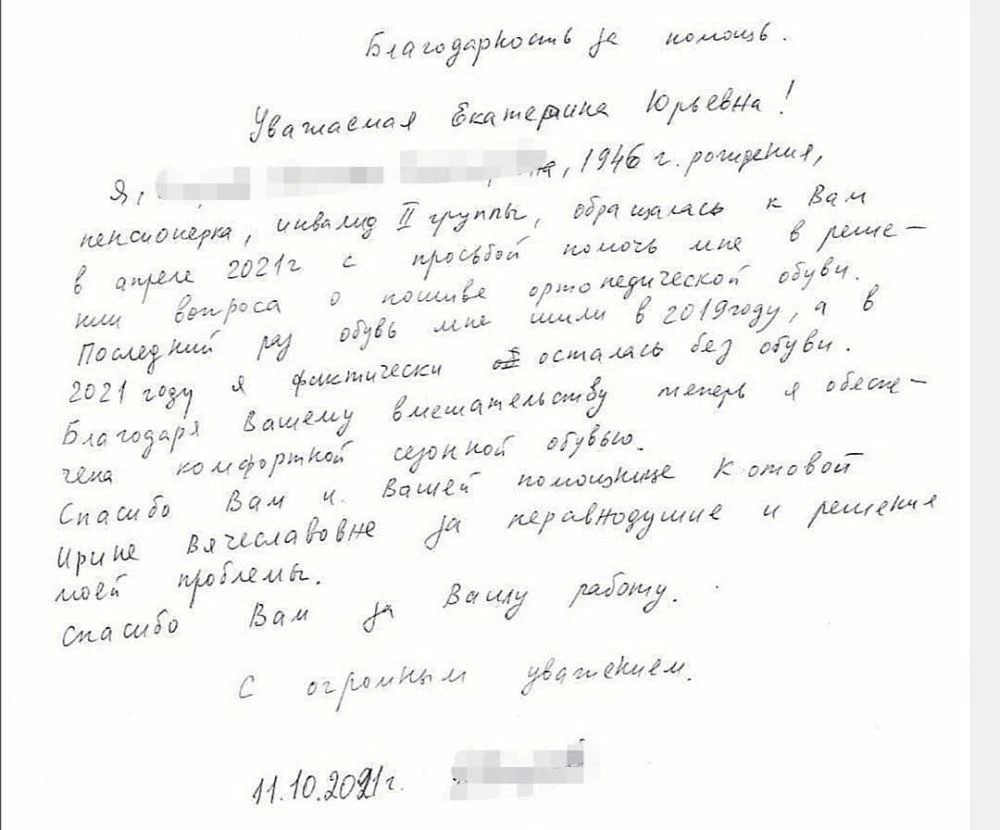 Благодарность за помощь.
Уважаемая Екатерина Юрьевна!
Я, на, 1946 г. рождения,
пенсионерка, инвалид II группы, обращалась к Вам
в апреле 2021г с просьбой помочь мне в реше-
нии вопроса о пошиве ортопедической обуви.
Последний раз обувь мне шили в 2019году, а в
2021 году я фактически осталась без обуви.
Благодаря Вашему вмешательству теперь я обеспе-
чена комфортной сезонной обувью.
Спасибо Вам и Вашей помощнице Котовой
Ирине Вячеславовне за неравнодушие и решения
моей проблемы.
Спасибо Вам за Вашу работу.
С огромным уважением.
11.10.2021г.